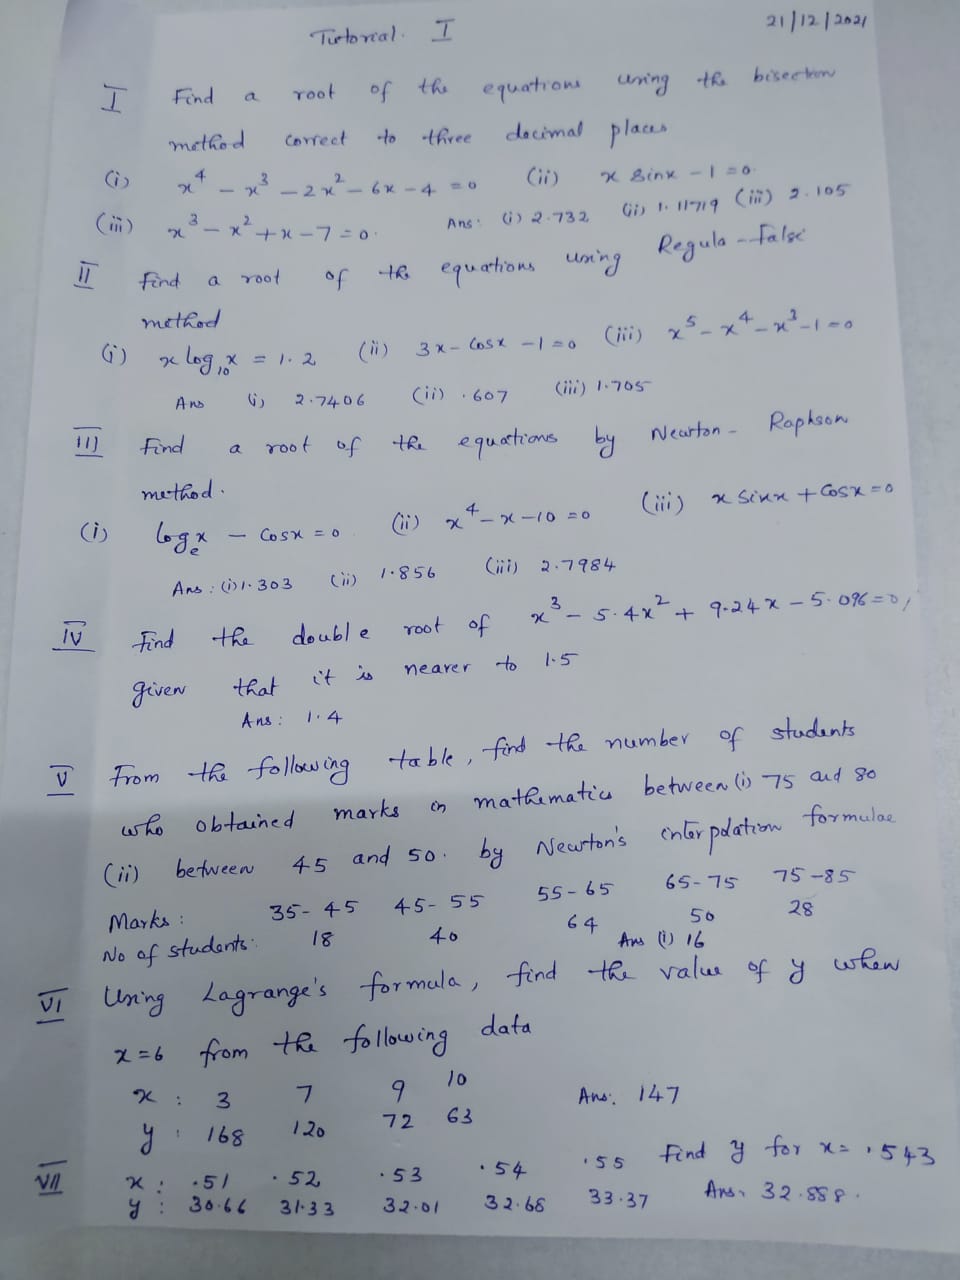 Tutorial. I 21/12/2021
I Find a root of the equations using the bisection
method correct to three decimal places
(i) x⁴ - x³ - 2x² - 6x - 4 = 0 (ii) x sinx - 1 = 0.
(iii) x³ - x² + x - 7 = 0. Ans: (i) 2.732 (ii) 1.11719 (iii) 2.105
II Find a root of the equations using Regula-false
method
(i) x log₁₀x = 1.2 (ii) 3x - Cosx - 1 = 0 (iii) x⁵ - x⁴ - x³ - 1 = 0
Ans (i) 2.7406 (ii) .607 (iii) 1.705
III Find a root of the equations by Newton- Raphson
method.
(i) logₑx - Cosx = 0 (ii) x⁴ - x - 10 = 0 (iii) x Sinx + Cosx = 0
Ans: (i) 1.303 (ii) 1.856 (iii) 2.7984
IV Find the double root of x³ - 5.4x² + 9.24x - 5.096 = 0,
given that it is nearer to 1.5
Ans: 1.4
V From the following table, find the number of students
who obtained marks in mathematics between (i) 75 and 80
(ii) between 45 and 50. by Newton's interpolation formulae
Marks: 35-45 45-55 55-65 65-75 75-85
No of students: 18 40 64 50 28
Ans (i) 16
VI Using Lagrange's formula, find the value of y when
x = 6 from the following data
x : 3 7 9 10 Ans: 147
y : 168 120 72 63
VII x : .51 .52 .53 .54 .55 Find y for x = .543
y : 30.66 31.33 32.01 32.68 33.37 Ans. 32.888.